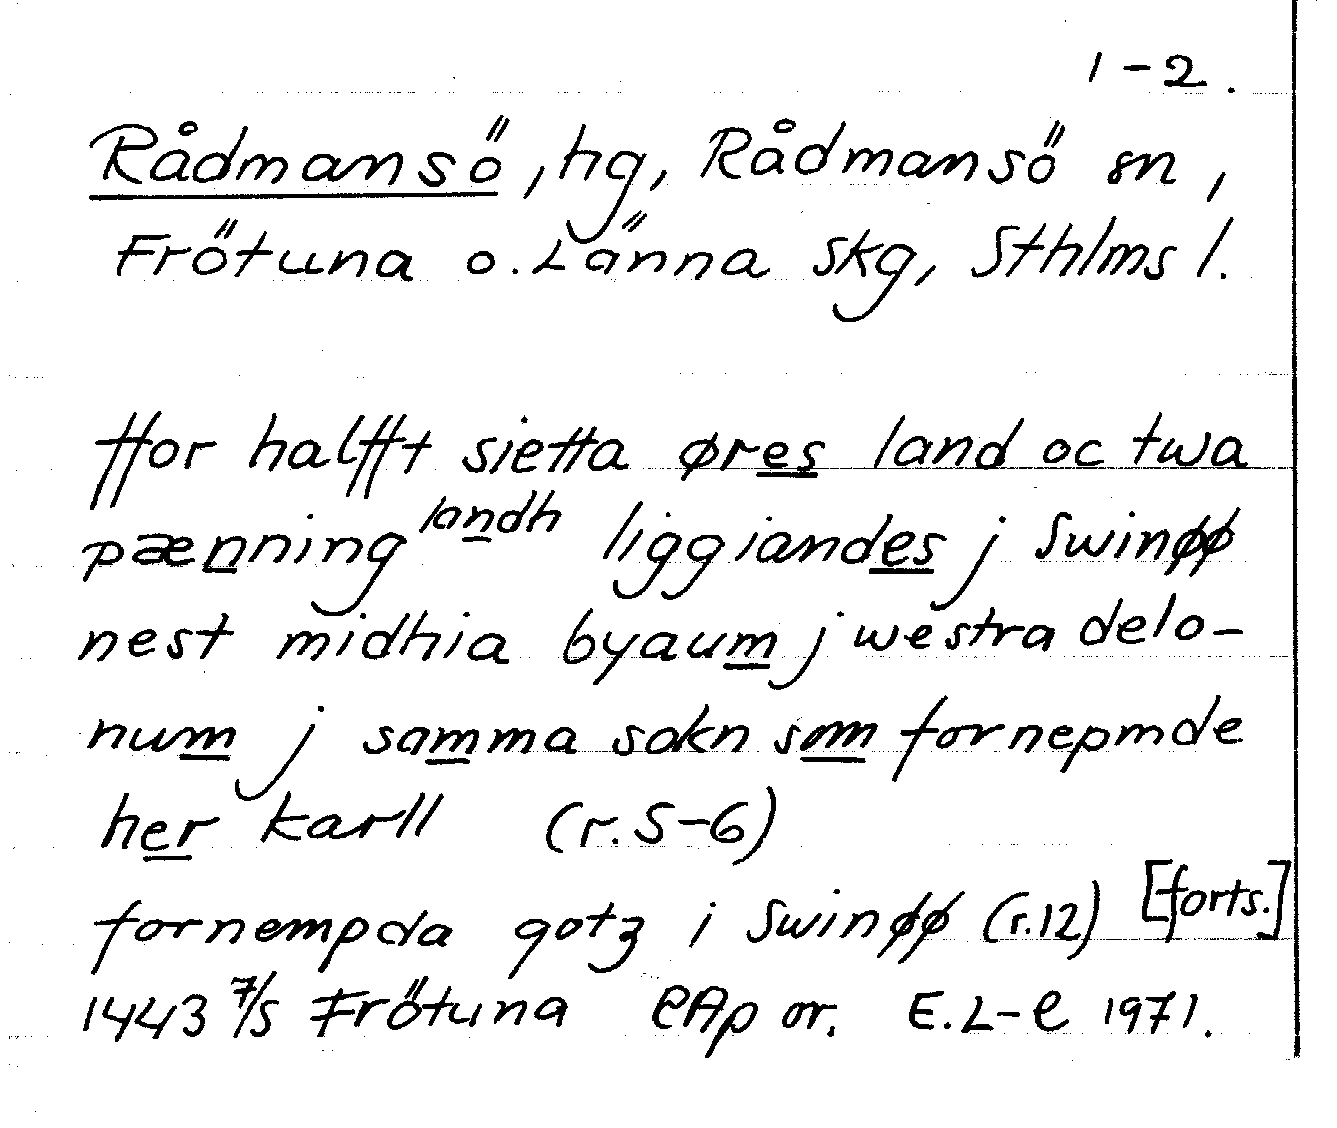 1-2.
Rådmansö, hg, Rådmansö sn,
Frötuna o. Länna skg, Sthlms l.
ffor halfft sietta øres land oc twa
pænning landh liggiandes j Swinøø
nest midhia byaum j westra delo-
num j samma sokn som fornepmde
her karll (r. 5-6)
fornempda gotz i Swinøø (r.12) [forts.]
1443 7/5 Frötuna EAp or. E.L-e 1971.